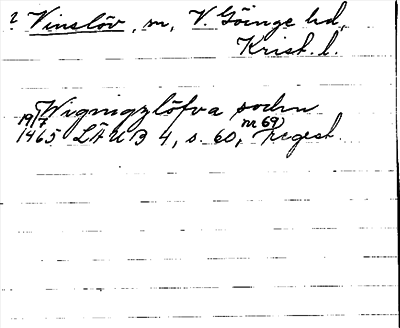 ? Vinslöv, sn, V. Göinge hd,
Krist. l.
Wignigzlöfva sochn
19/7 1465 LÄUB 4, s. 60, nr 69) Regest.